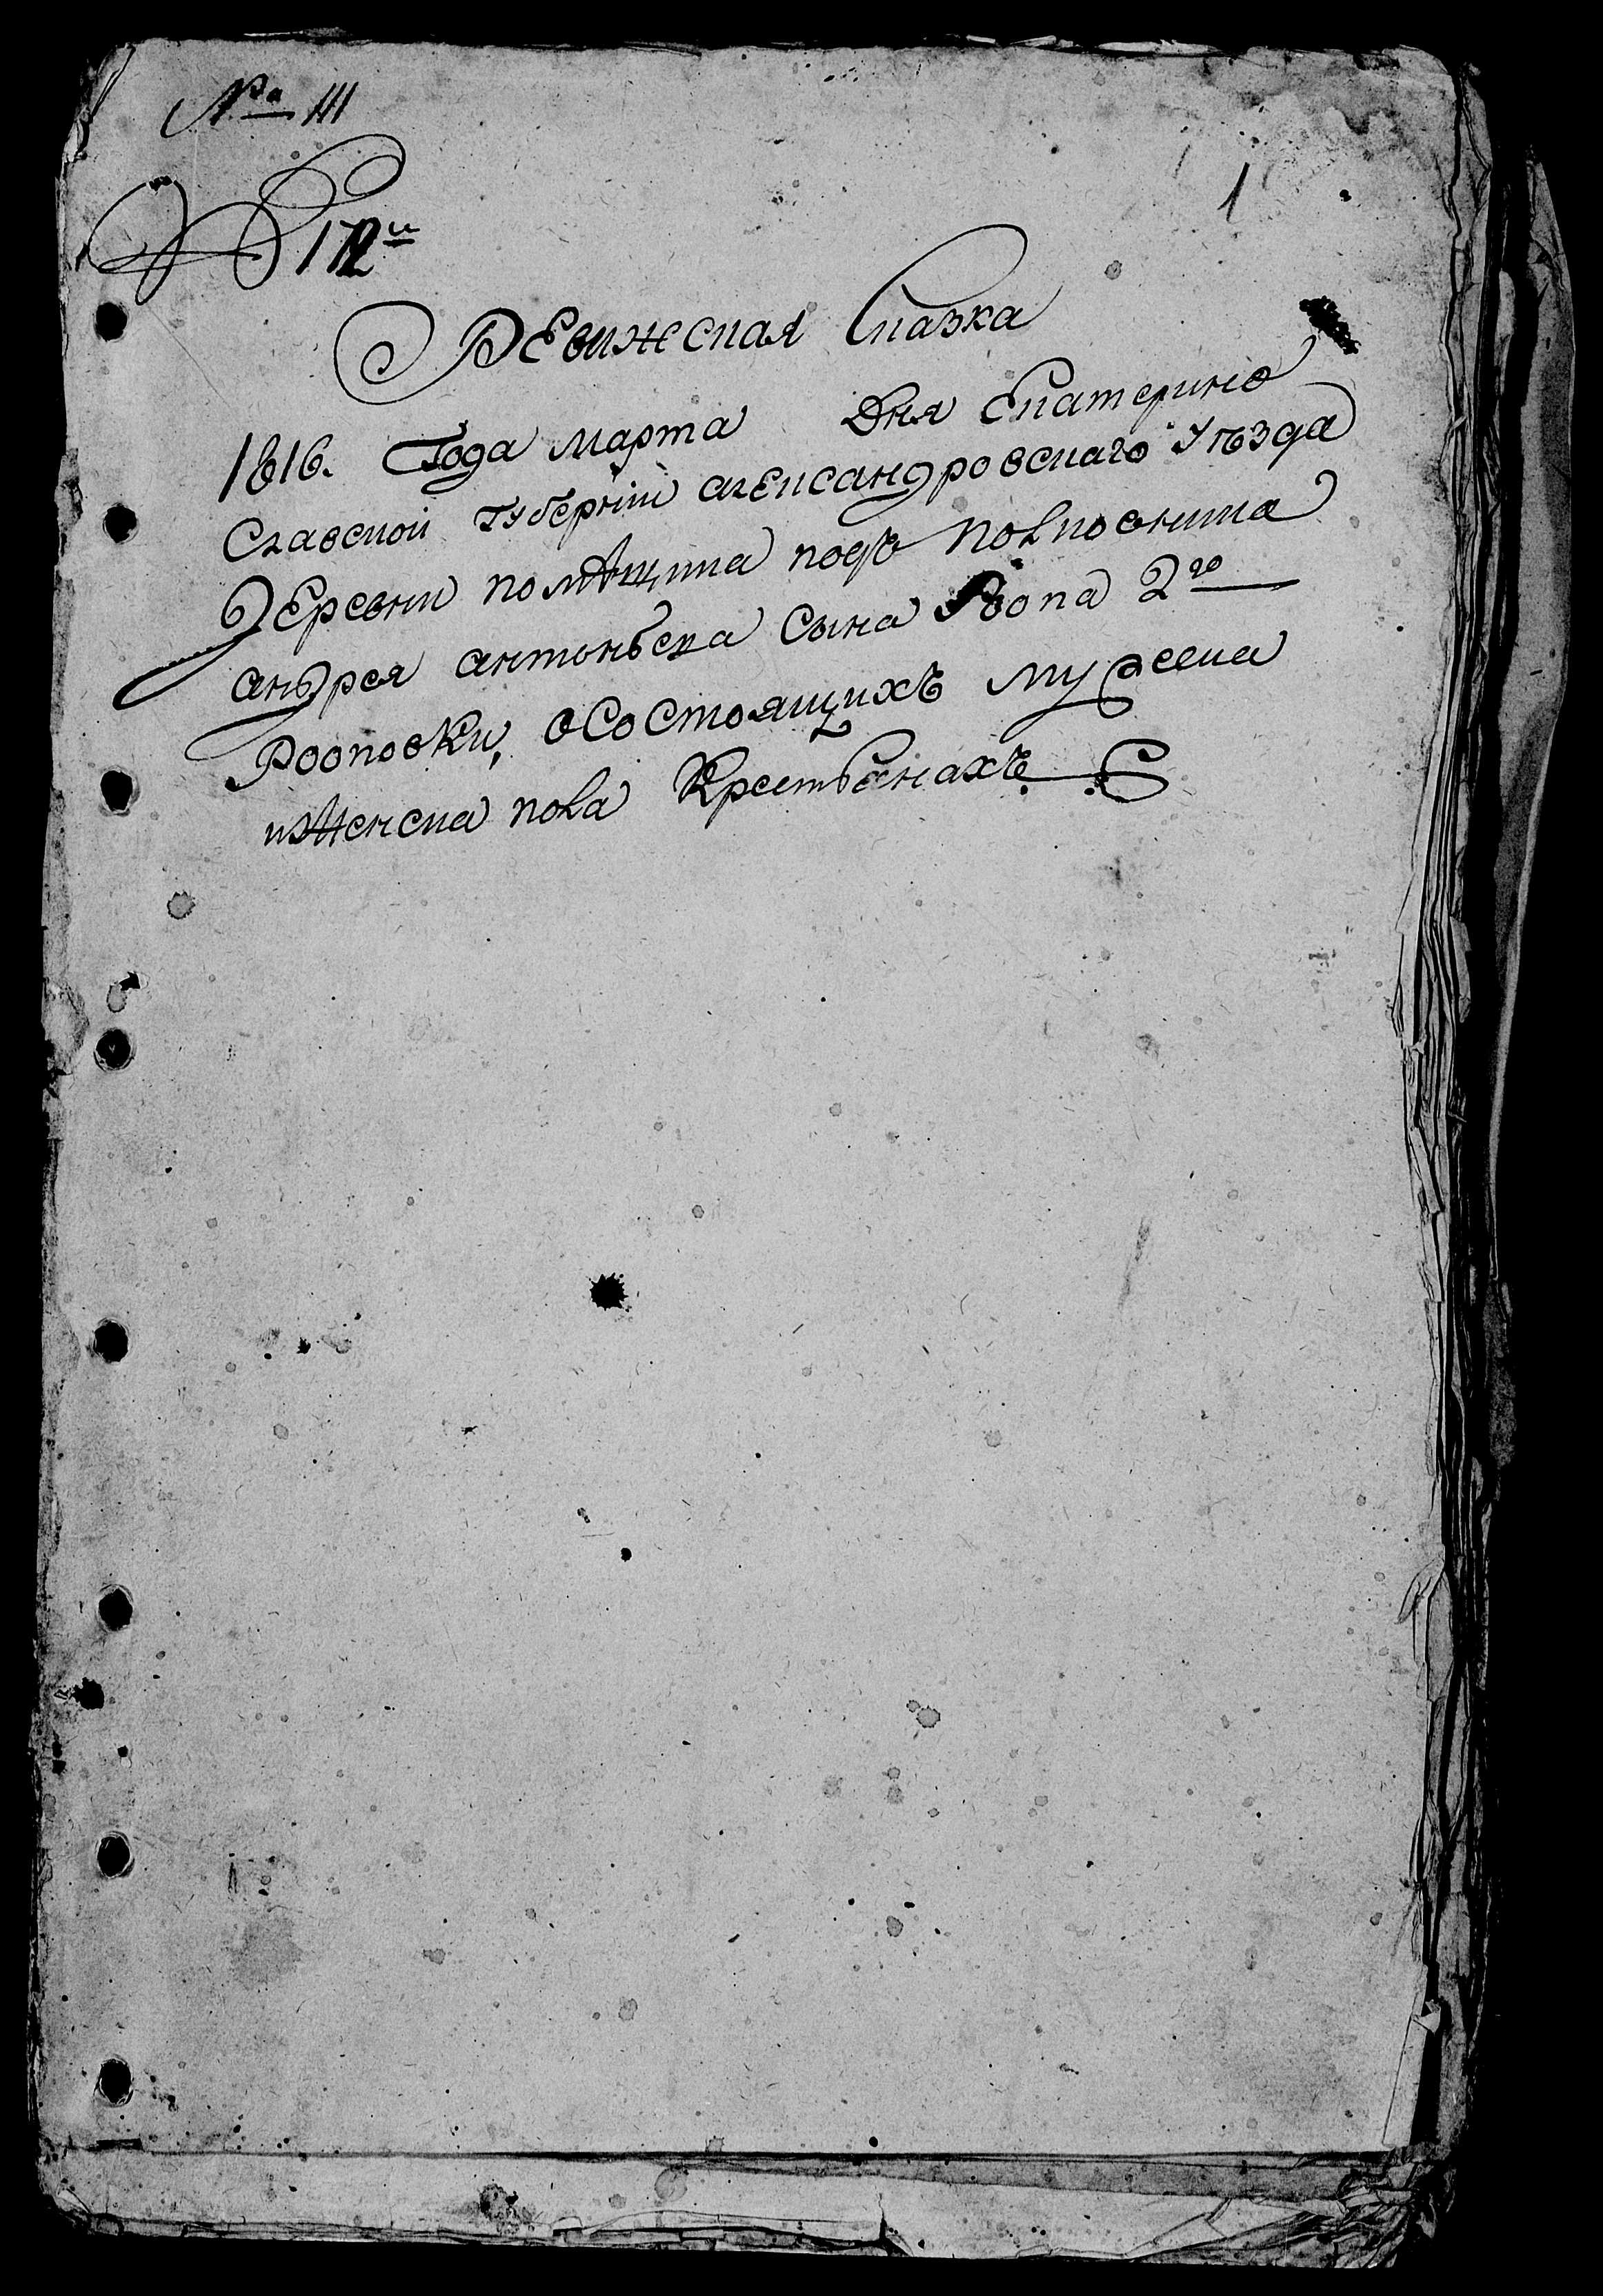 № 111
1
172й
Ревижская Сказка
1816. Года марта Дня Екатерино
Славской Губернiи александровскаго Уѣзда
Деревни помѣщика подъ полковника
андрея антоньева Сына Роопа 2го
Рооповки, о Состоящихъ мужеска
и женска пола Крестьянахъ